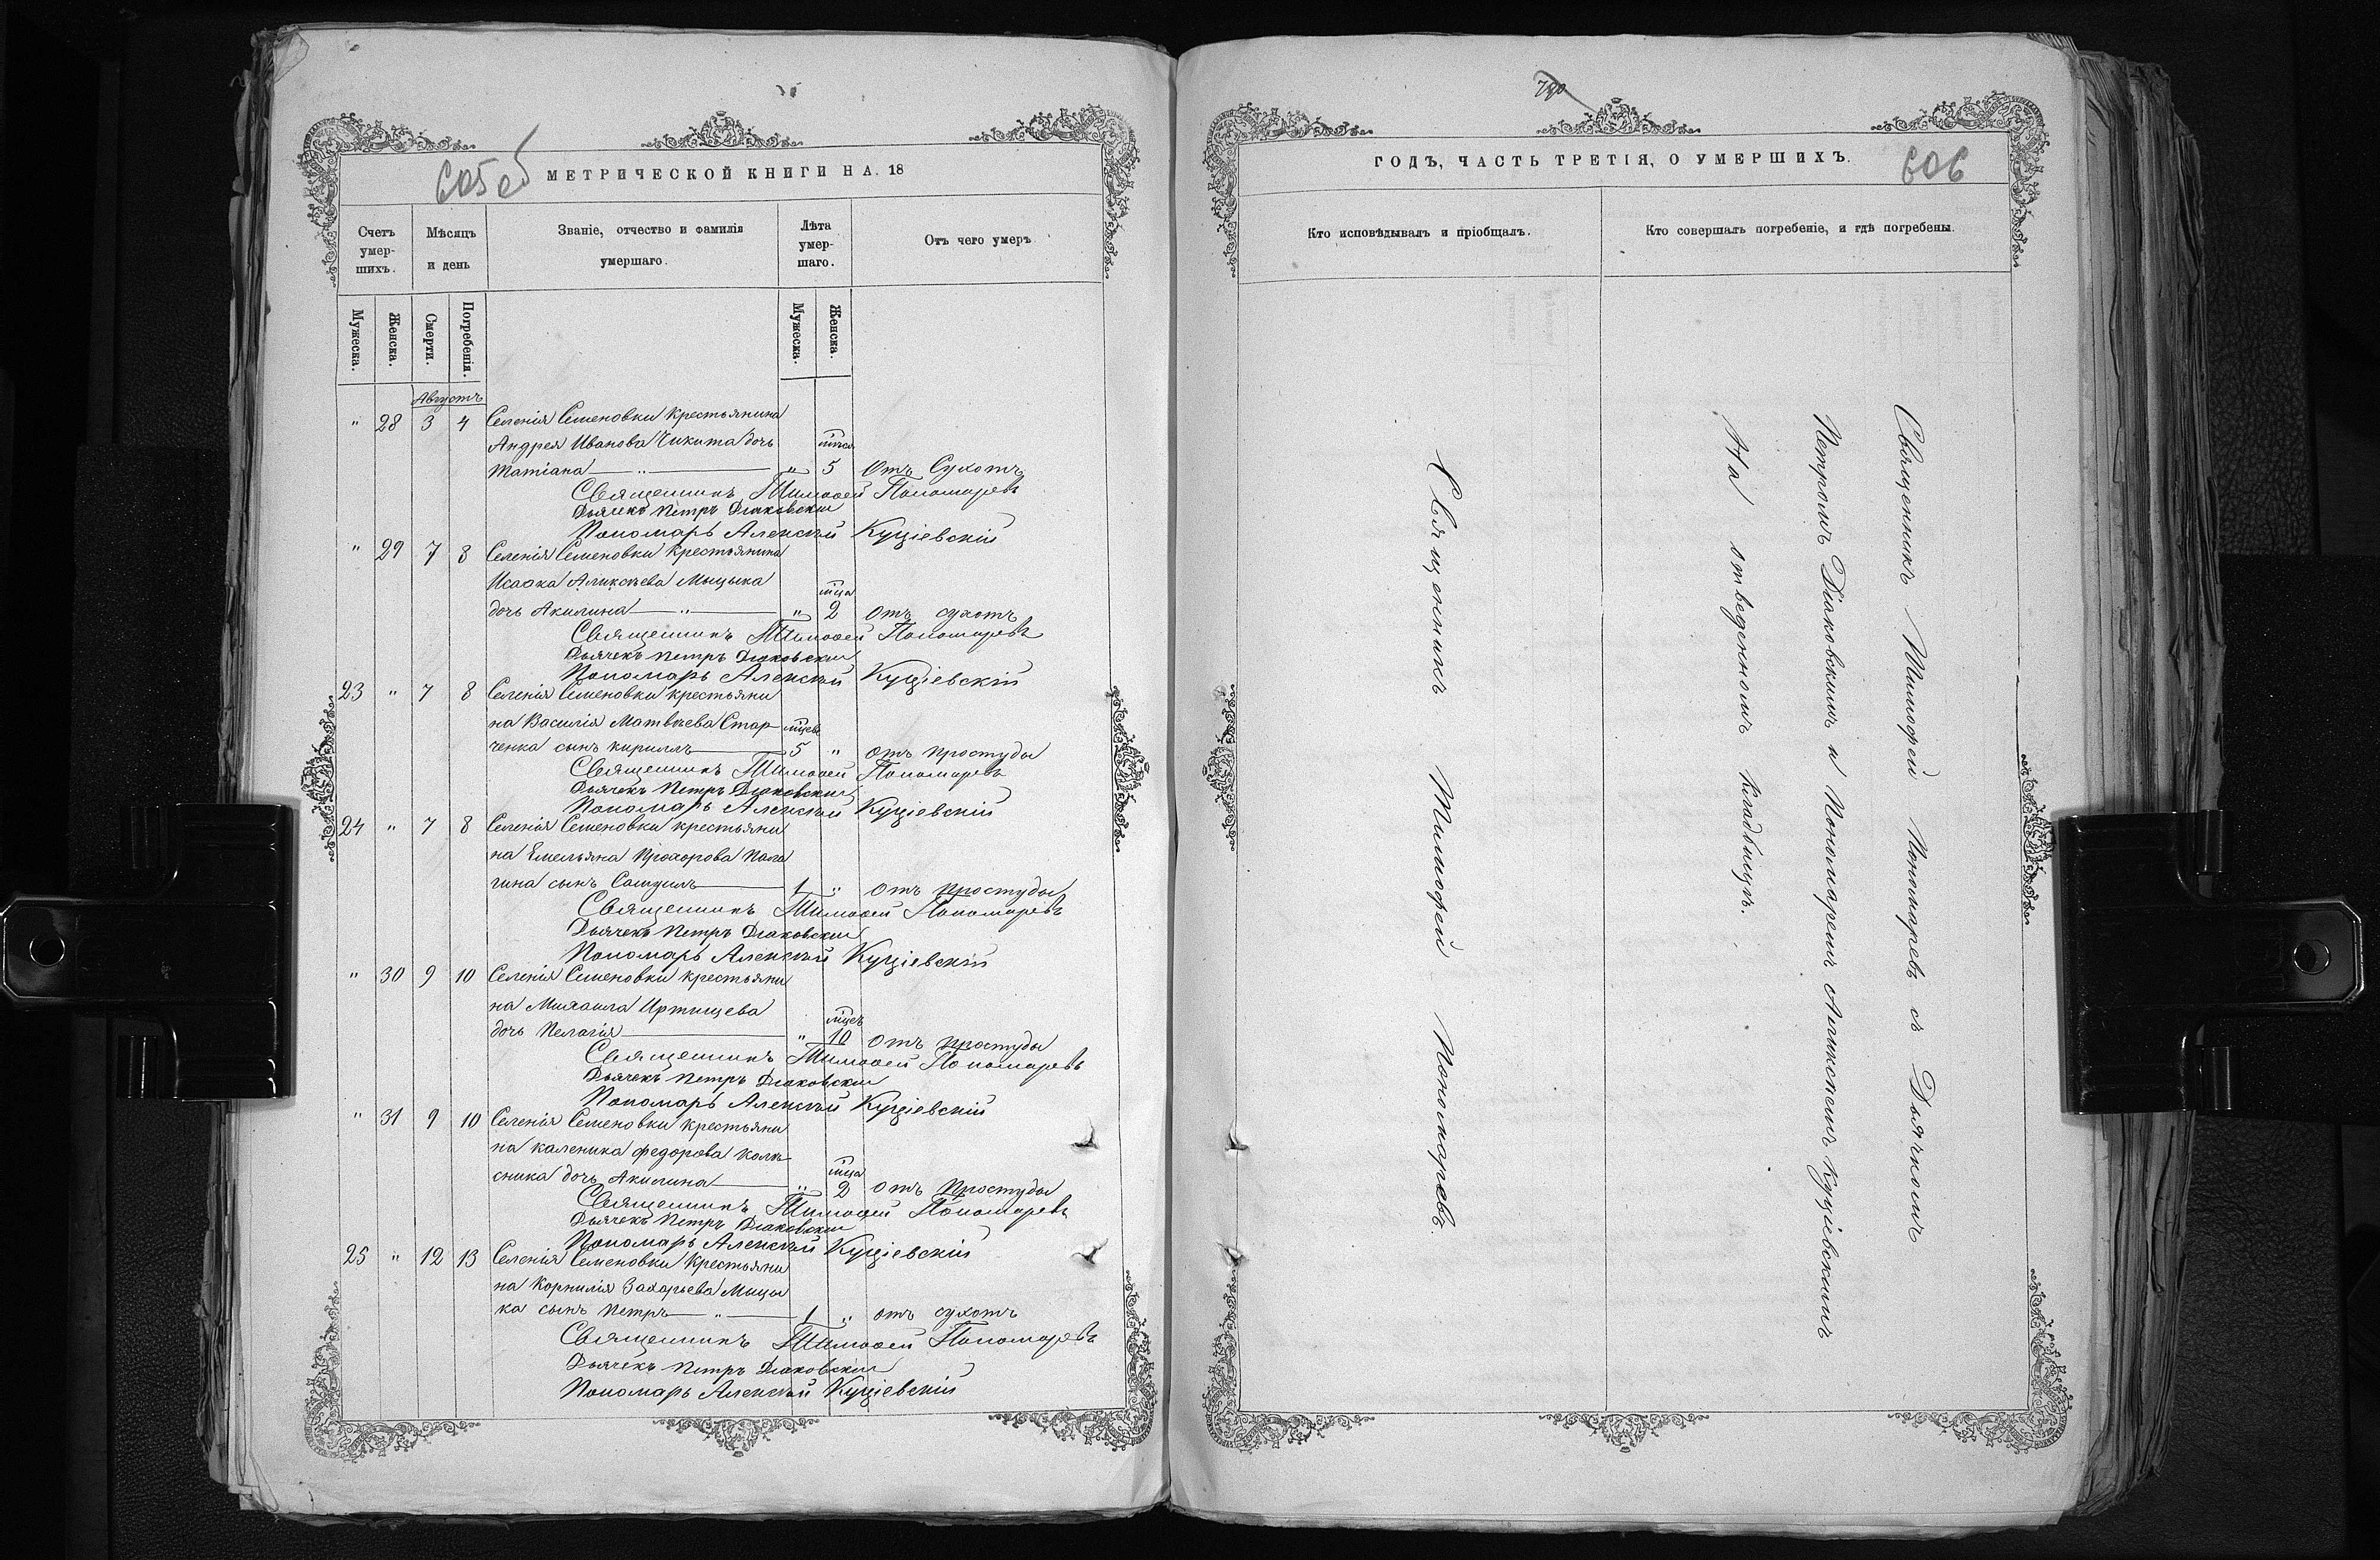 605 об
МЕТРИЧЕСКОЙ КНИГИ НА 18
Счетъ умер-шихъ.
Мѣсяцъ и день
Званіе, отчество и фамилія умершаго.
Лѣта умер-шаго.
Отъ чего умеръ
Мужеска.
Женска.
Смерти.
Погребенія.
Мужеска.
Женска.
Августъ
" 28 3 4 Селенія Семеновки крестьянина
Андрея Иванова Чикита дочь мѣсяц
Татіана " 5 Отъ Сухотъ
Священникъ Тимоѳей Пономаревъ
Дьячекъ Петръ Діаковскій
Пономарь Алексѣй Куціевскій
" 29 7 8 Селенія Семеновки крестьянина
Исаака Аликсѣева Мыцыка мца
дочь Акилина " 2 отъ сухотъ
Священникъ Тимоѳей Пономаревъ
Дьячекъ Петръ Діаковскій
Пономарь Алексѣй Куціевскій
23 " 7 8 Селенія Семеновки крестьяни
на Василія Матвѣева Стар- мцевъ
ченка сынъ Кириллъ 5 " отъ простуды
Священникъ Тимоѳей Пономаревъ
Дьячекъ Петръ Діаковскій
Пономарь Алексѣй Куціевскій
24 " 7 8 Селенія Семеновки крестьяни
на Емельяна Прохорова
сынъ Самуилъ 1 " отъ простуды
Священникъ Тимоѳей Пономаревъ
Дьячекъ Петръ Діаковскій
Пономарь Алексѣй Куціевскій
" 30 9 10 Селенія Семеновки крестьяни
на Михаила Иртищева мцевъ
дочь Пелагія " 10 отъ простуды
Священникъ Тимоѳей Пономаревъ
Дьячекъ Петръ Діаковскій
Пономарь Алексѣй Куціевскій
" 31 9 10 Селенія Семеновки крестьяни
на Каленика Федорова Коле- мца
сника дочь Акилина " 2 отъ простуды
Священникъ Тимоѳей Пономаревъ
Дьячекъ Петръ Діаковскій
Пономарь Алексѣй Куціевскій
25 " 12 13 Селенія Семеновки крестьяни
на Корнилія Захарьева Мицы
ка сынъ Петръ " 1 " отъ сухотъ
Священникъ Тимоѳей Пономаревъ
Дьячекъ Петръ Діаковскій
Пономарь Алексѣй Куціевскій
ГОДЪ, ЧАСТЬ ТРЕТІЯ, О УМЕРШИХЪ.
606
Кто исповѣдывалъ и пріобщалъ.
Кто совершалъ погребеніе, и гдѣ погребены.
Священникъ Тимофей Пономаревъ.
Священникъ Тимофей Пономаревъ съ Дьячкомъ
Петромъ Діаковскимъ и Пономаремъ Аликсѣемъ Куціевскимъ
На отведенномъ Кладбищѣ.